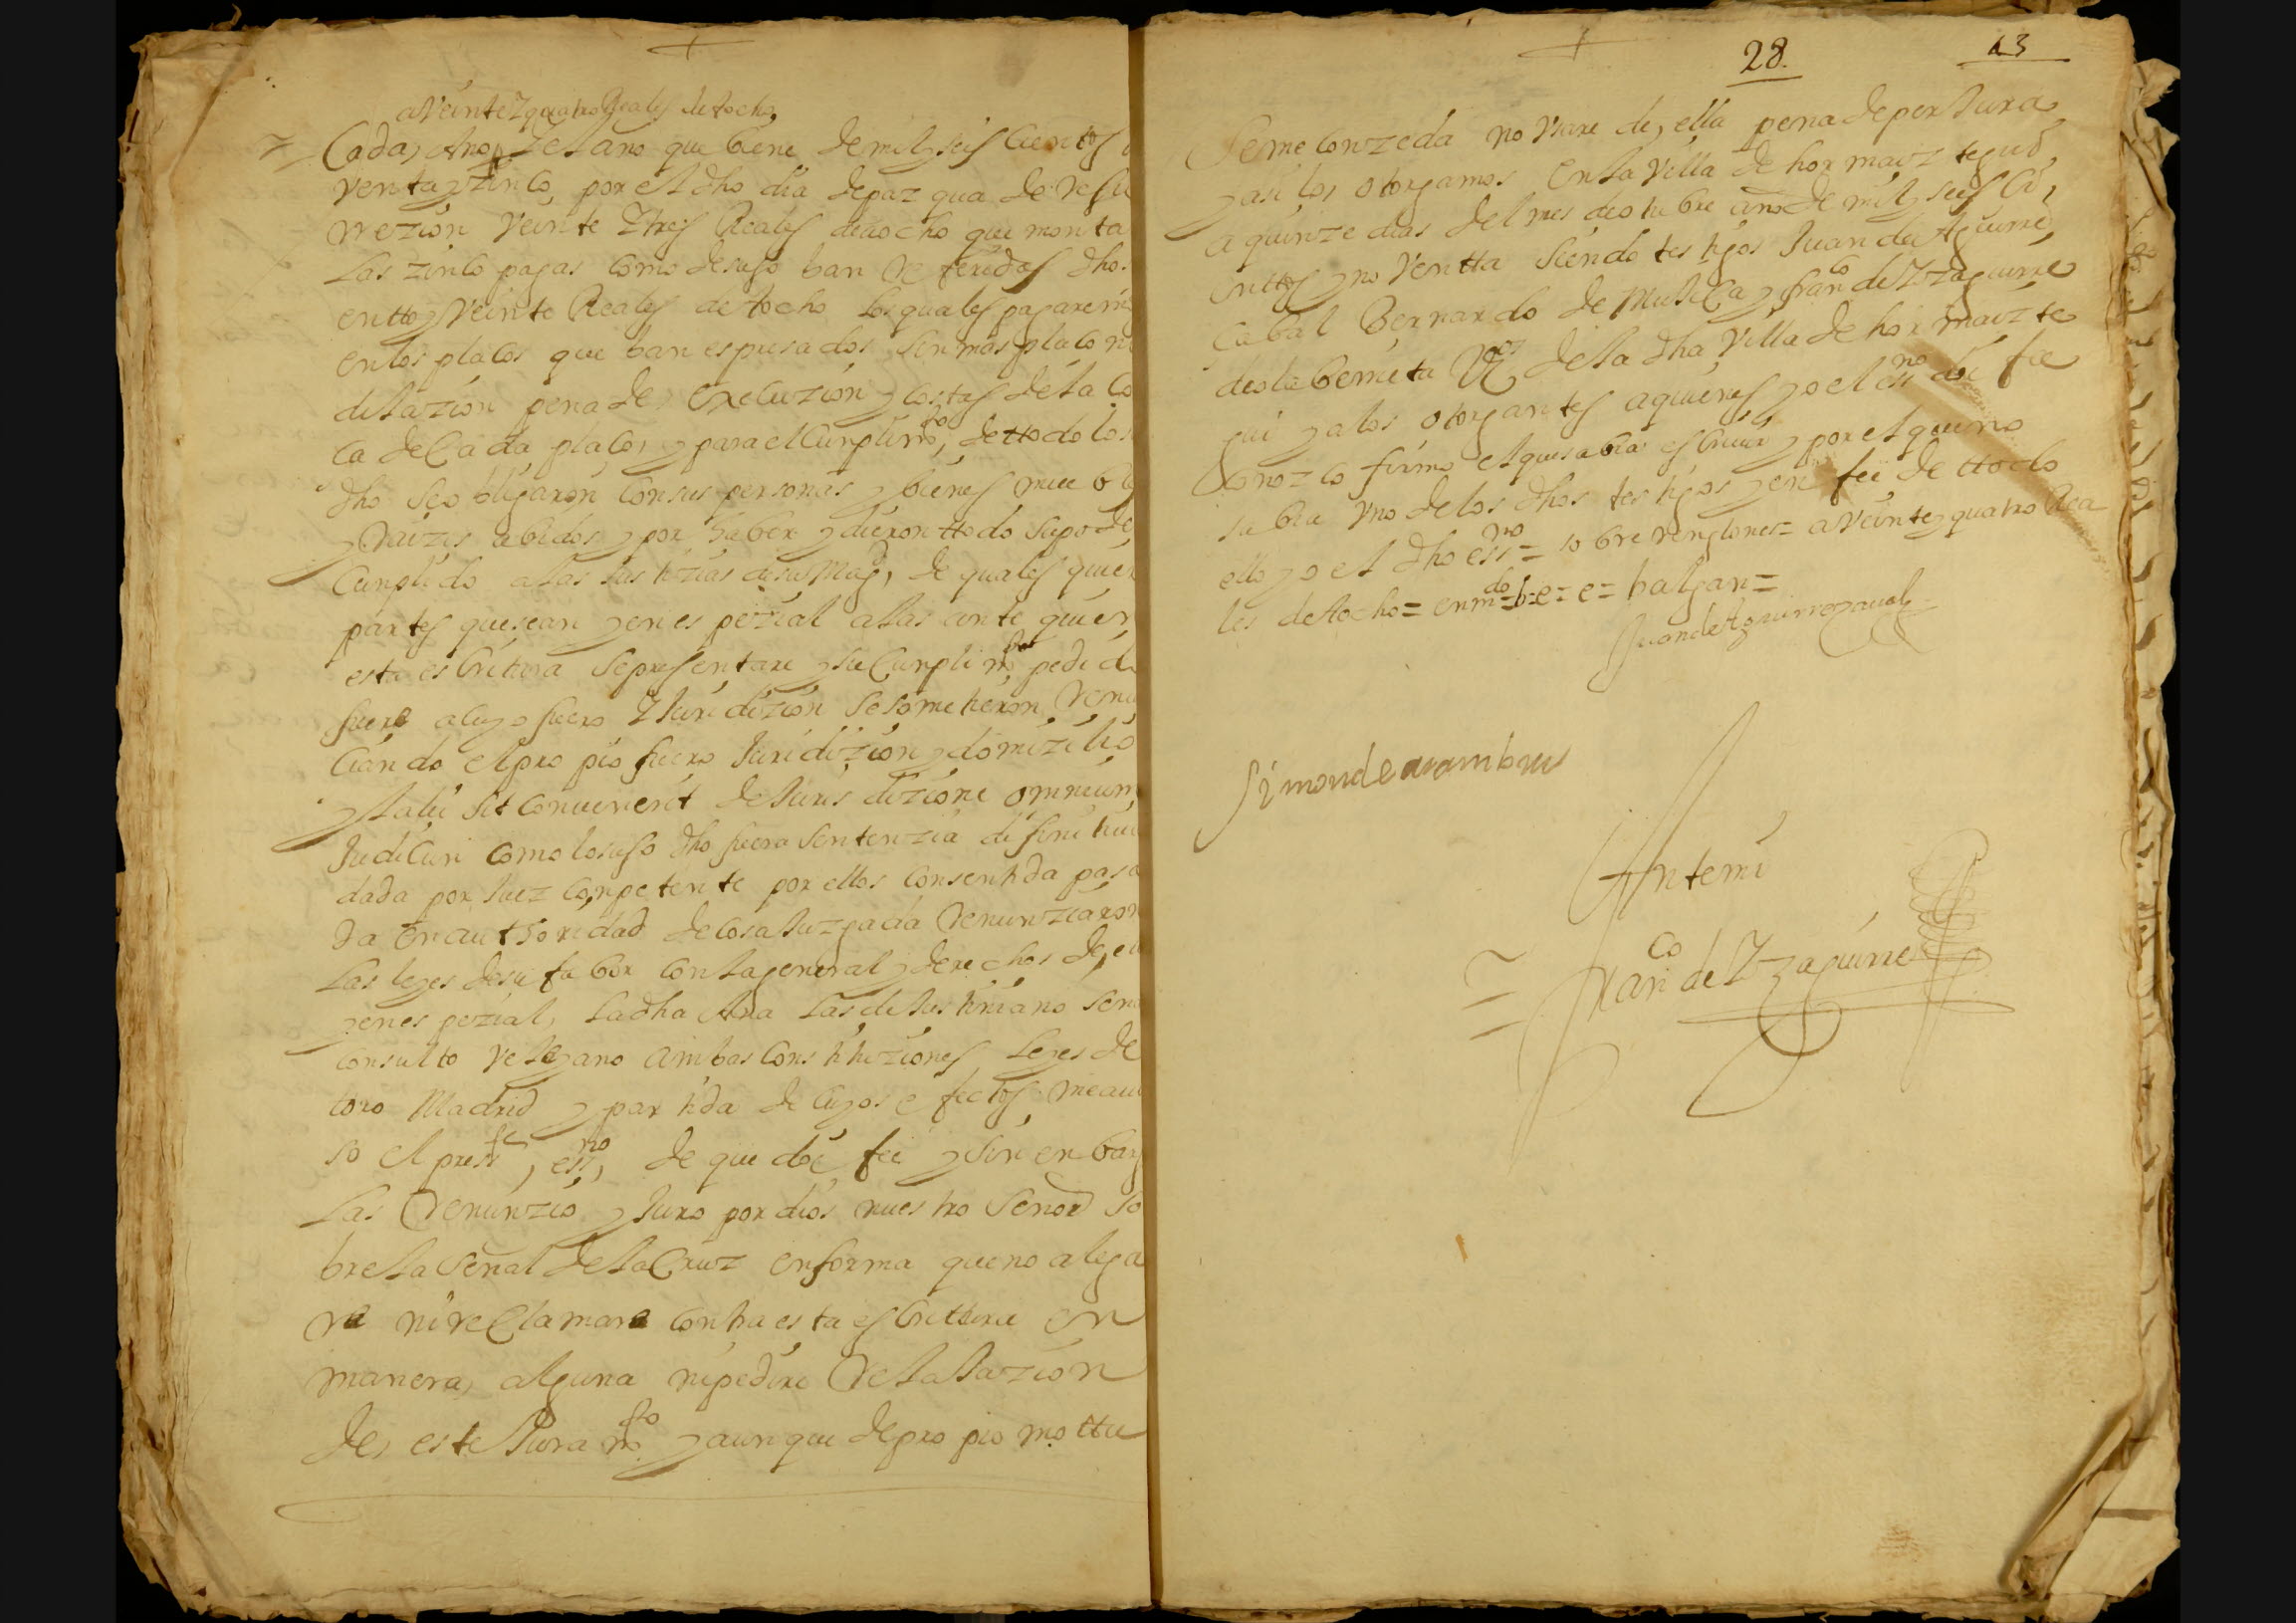 a Veinte Y quatro Reales de Aocho,
Cada, Ano, Y el ano que biene de mil y seis cientos
venta y zinco por el dho dia de pazqua de Resu
rrezion veinte Y tres Reales de aocho que monta
Las zinco pagas como de suso ban Referidas dho.
entto y Veinte Reales de Aocho Los quales pagaremos
en los placos que ban espresados, sin mas placo ni
dilazion pena de, execuzion y costas de la co
ca de Cada placo, y para el Cunplimto, de ttodo lo
dho se obligaron con sus personas y bienes muebles
y Raizes abidos y por haber y dieron ttodo su pode
Cunplido a las Justizias de su Magd, de quales quier
partes que sean y en espezial a las ante quien
esta escritura se presentare y su Cunplimto pedido
fuere a cuyo fuero Y Juridizion se sometieron Renu
ciando el propio fuero Juridizion y domizilio
y la lei sit convenerit de Juris dizione omnium
Judicun como lo suso dho fuera sentenzia difinitiva
dada por Juez conpetente por ellos consentida pasa
da en authoridad de cosa Juzgada Renunziaron
Las leyes de su fabor con la general y derechos de, ella
y en espezial, La dha Ana Las de Justiniano sena
consulto Veleyano ambas constituziones Leyes de
toro Madrid y partida de cuyos efectos me aui
so el preste, essno, de que doi fee y sin enbarg
Las Renunzio y Juro por dios nuestro Senor so
bre la senal de la Cruz en forma que no alega
re ni reclamare contra esta escrittura en
manera, alguna ni pedire Relaxazion
de, este Juramto y aunque de propio mottu
28. 13
Se me conzeda no Vsare de, ella pena de perJura
y asi los otorgamos en la Villa de hormaiztegui
a quinze dias del mes de otubre año de mil y seis ci,
enttos y noventta siendo testigos Juan de Aguirre
cabal Bernardo de Mujica y franco de Yzaguirre
de olaberrieta Vos de la dha Villa de hormaizte
gui y a los otorgantes a quienes yo el essno doi fee
conozco firmo el que sabia escriuir y por el que no
sabia vno de los dhos testigos y en fee de ttodo
ello yo el dho essno = sobre renglones = a veinte y quatro Rea
les de Aocho = enmdo = b = e = e = balgan =
Juan de Aguirrezaual
Simon de aramburu
Antemi
Franco de Yzaguirre